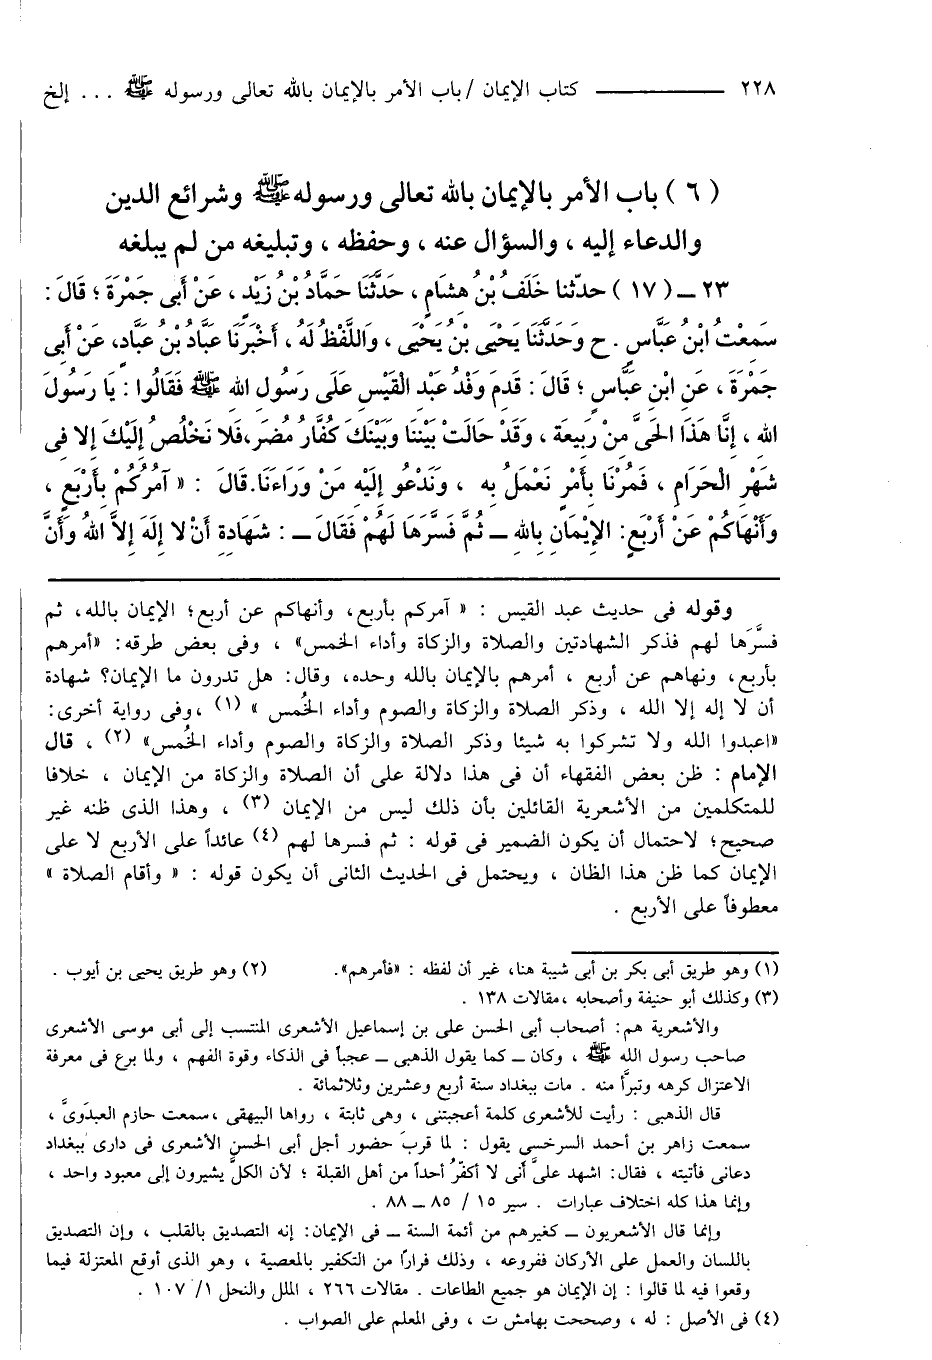 ٢٢٨ ــــــــــ كتاب الإيمان / باب الأمر بالإيمان بالله تعالى ورسوله ﷺ ... إلخ
( ٦ ) باب الأمر بالإيمان بالله تعالى ورسوله ﷺ وشرائع الدين
والدعاء إليه ، والسؤال عنه ، وحفظه ، وتبليغه من لم يبلغه
٢٣ ــ ( ١٧ ) حدّثنا خَلَفُ بْنُ هشَامٍ ، حَدَّثَنَا حَمَّادُ بْنُ زَيْدٍ ، عَنْ أَبِى جَمْرَةَ ؛ قَالَ :
سَمعْتُ ابْنَ عَبَّاسٍ . ح وَحَدَّثَنَا يَحْيَى بْنُ يَحْيَى ، وَاللَّفْظُ لَهُ ، أَخْبَرَنَا عَبَّادُ بْنُ عَبَّادٍ، عَنْ أَبِى
جَمْرَةَ ، عَنِ ابْنِ عَبَّاسٍ ؛ قَالَ : قَدمَ وَفْدُ عَبْد الْقَيْسِ عَلَى رَسُول الله ﷺ فَقَالُوا : يَا رَسُولَ
الله ، إِنَّا هَذَا الحَىَّ منْ رَبِيعة ، وَقَدْ حَالَتْ بَيْنَنَا وَبَيْنَكَ كُفَّارُ مُضَرَ،فَلا نَخْلُصُ إِلَيْكَ إِلا فِى
شَهْرِ الْحَرَامِ ، فَمُرْنَا بأَمْرٍ نَعْمَلُ بِه ، وَنَدْعُو إِلَيْهِ مَنْ وَرَاءَنَا.قَالَ : « آمُرُكُمْ بِأَرْبَعٍ ،
وَأَنْهَاكُمْ عَنْ أَرْبَعٍ: الإِيْمَانِ بِالله ــ ثُمَّ فَسَّرَهَا لَهُمْ فَقَالَ ــ : شَهَادَةِ أَنْ لا إِلَهَ إِلاَّ اللهُ وَأَنَّ
وقوله فى حديث عبد القيس : « آمركم بأربع، وأنهاكم عن أربع؛ الإيمان بالله، ثم
فسَّرَها لهم فذكر الشهادتين والصلاة والزكاة وأداء الخمس» ، وفى بعض طرقه: «أمرهم
بأربع، ونهاهم عن أربع ، أمرهم بالإيمان بالله وحده، وقال: هل تدرون ما الإيمان؟ شهادة
أن لا إله إلا الله ، وذكر الصلاة والزكاة والصوم وأداء الخُمس » (١) ،وفى رواية أخرى:
«اعبدوا الله ولا تشركوا به شيئا وذكر الصلاة والزكاة والصوم وأداء الخُمس» (٢) ، قال
الإمام : ظن بعض الفقهاء أن فى هذا دلالة على أن الصلاة والزكاة من الإيمان ، خلافا
للمتكلمين من الأشعرية القائلين بأن ذلك ليس من الإيمان (٣) ، وهذا الذى ظنه غير
صحيح؛ لاحتمال أن يكون الضمير فى قوله : ثم فسرها لهم (٤) عائداً على الأربع لا على
الإيمان كما ظن هذا الظان ، ويحتمل فى الحديث الثانى أن يكون قوله : « وأقام الصلاة »
معطوفاً على الأربع .
(١) وهو طريق أبى بكر بن أبى شيبة هنا، غير أن لفظه : «فأمرهم». (٢) وهو طريق يحيى بن أيوب .
(٣) وكذلك أبو حنيفة وأصحابه ،مقالات ١٣٨ .
والأشعرية هم: أصحاب أبى الحسن على بن إسماعيل الأشعرى المنتسب إلى أبى موسى الأشعرى
صاحب رسول الله ﷺ ، وكان ــ كما يقول الذهبى ــ عجباً فى الذكاء وقوة الفهم ، ولما برع فى معرفة
الاعتزال كرهه وتبرَّأ منه . مات ببغداد سنة أربع وعشرين وثلاثمائة .
قال الذهبى : رأيت للأشعرى كلمة أعجبتنى ، وهى ثابتة ، رواها البيهقى ،سمعت حازم العبدَوىَّ ،
سمعت زاهر بن أحمد السرخسى يقول : لما قربَ حضور أجل أبى الحسن الأشعرى فى دارى ببغداد
دعانى فأتيته ، فقال: اشهد علىَّ أنى لا أكفّرُ أحداً من أهل القبلة ؛ لأن الكلَّ يشيرون إلى معبود واحد ،
وإنما هذا كله اختلاف عبارات . سير ١٥ / ٨٥ ــ ٨٨ .
وإنما قال الأشعريون ــ كغيرهم من أئمة السنة ــ فى الإيمان: إنه التصديق بالقلب ، وإن التصديق
باللسان والعمل على الأركان ففروعه ، وذلك فراراً من التكفير بالمعصية ، وهو الذى أوقع المعتزلة فيما
وقعوا فيه لما قالوا : إن الإيمان هو جميع الطاعات . مقالات ٢٦٦ ، الملل والنحل ١/ ١٠٧ .
(٤) فى الأصل : له ، وصححت بهامش ت ، وفى المعلم على الصواب .